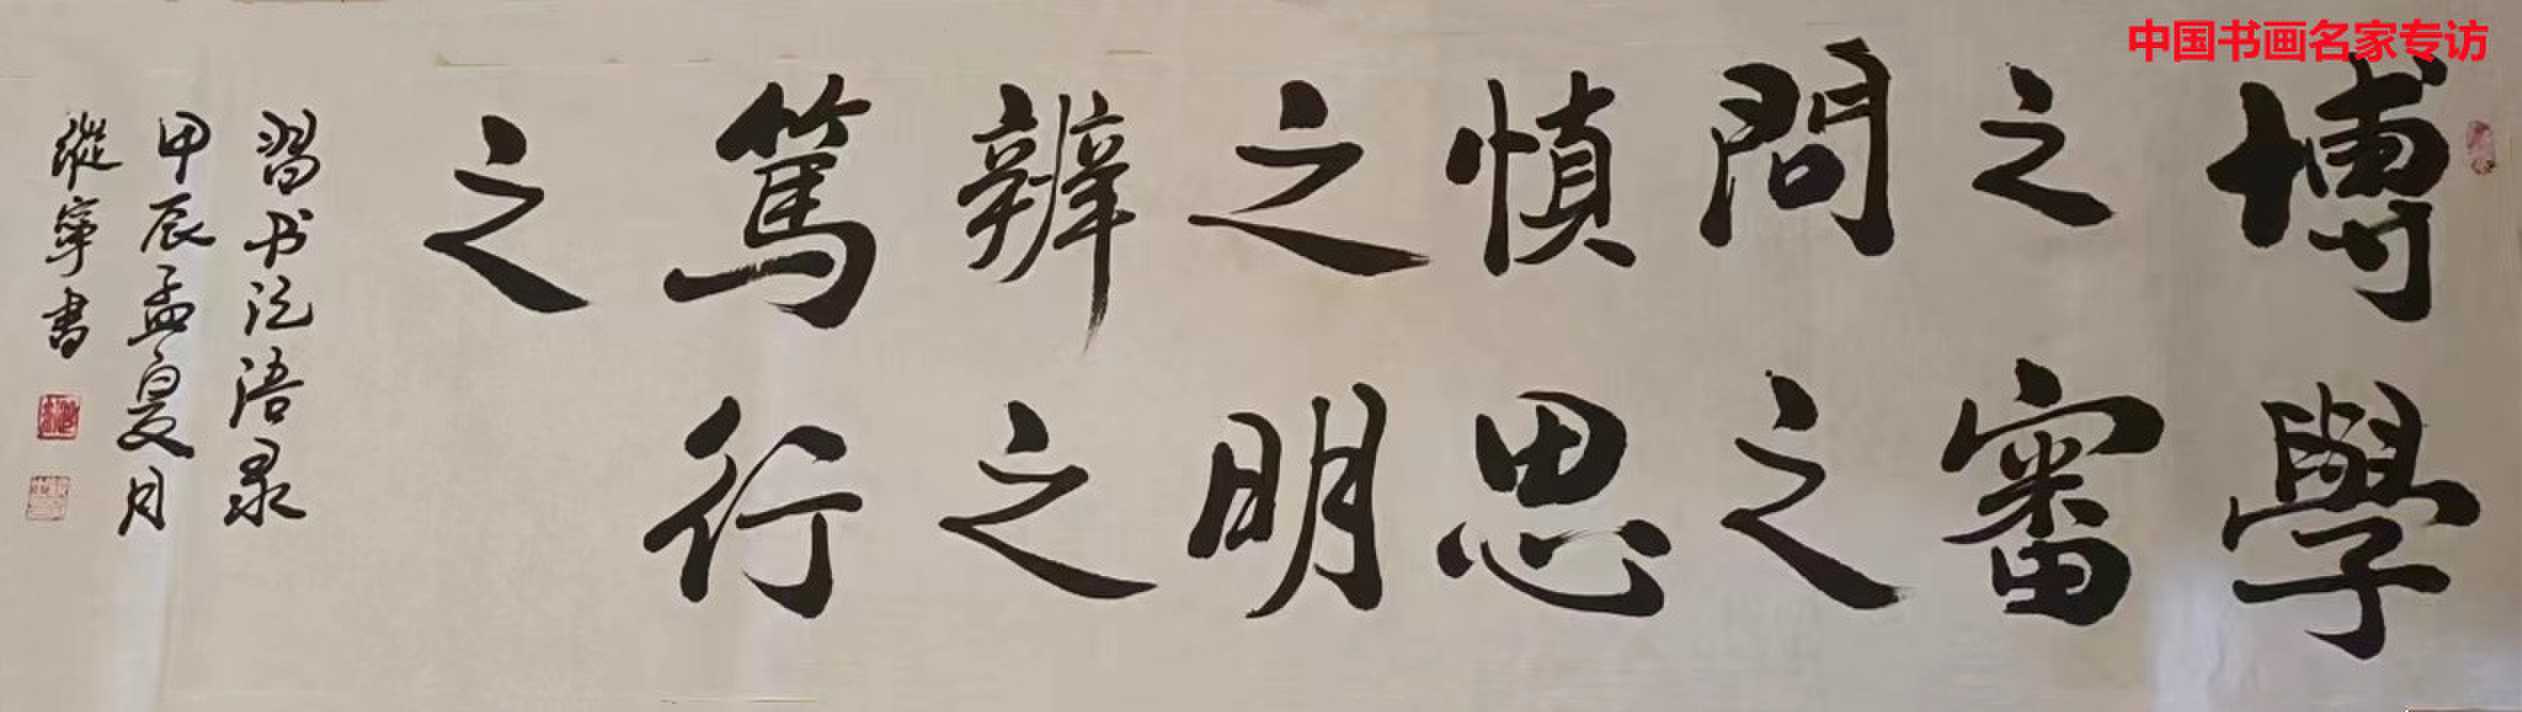 中国书画名家专访
博學
之審
問之
慎思
之明
辨之
篤行
之
习书记语录
甲辰孟夏月
縱寧書